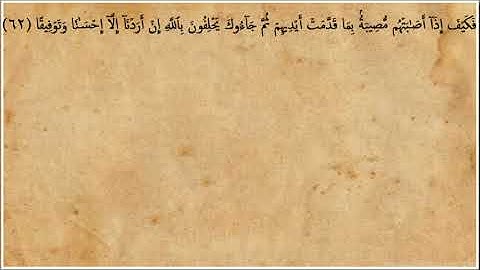 فَكَيْفَ إِذَآ أَصَٰبَتْهُم مُّصِيبَةٌۢ بِمَا قَدَّمَتْ أَيْدِيهِمْ ثُمَّ جَآءُوكَ يَحْلِفُونَ بِٱللَّهِ إِنْ أَرَدْنَآ إِلَّآ إِحْسَٰنًا وَتَوْفِيقًا (٦٢)